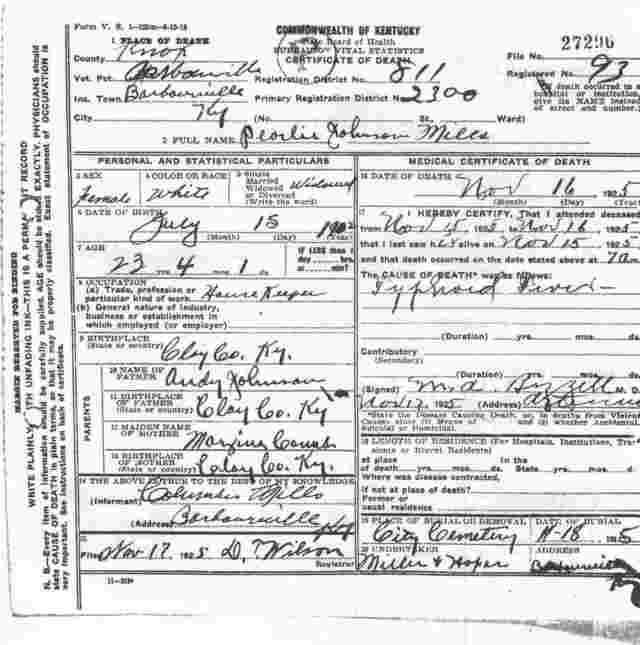 Form V. S. 1-125m-6-10-18
COMMONWEALTH OF KENTUCKY
State Board of Health
BUREAU OF VITAL STATISTICS
CERTIFICATE OF DEATH
27296
1 PLACE OF DEATH
County Knox
File No.
Vot. Pct. Barbourville
Registration District No. 811
Registered No. 93
Ins. Town Barbourville
Primary Registration District No. 2300
City Ky (No. St. Ward)
(If death occurred in a
hospital or institution,
give its NAME instead
of street and number.)
2 FULL NAME Pearlie Johnson Mills
PERSONAL AND STATISTICAL PARTICULARS
3 SEX Female
4 COLOR OR RACE White
5 Single Married Widowed or Divorced (Write the word) Widowed
6 DATE OF BIRTH
July 15 1902
(Month) (Day) (Year)
7 AGE
23 4 1 ds.
If LESS than 1 day hrs. or min.?
8 OCCUPATION
(a) Trade, profession or
particular kind of work House Keeper
(b) General nature of industry,
business or establishment in
which employed (or employer)
9 BIRTHPLACE
(State or country) Clay Co. Ky.
PARENTS
10 NAME OF
FATHER Andy Johnson
11 BIRTHPLACE
OF FATHER
(State or country) Clay Co. Ky
12 MAIDEN NAME
OF MOTHER
13 BIRTHPLACE
OF MOTHER
(State or country) Clay Co. Ky.
14 THE ABOVE IS TRUE TO THE BEST OF MY KNOWLEDGE
(Informant) Columbus Mills
(Address) Barbourville Ky
15
Filed Nov 17. 1925 D. T. Wilson
Registrar
11-3184
MEDICAL CERTIFICATE OF DEATH
16 DATE OF DEATH
Nov 16 1925
(Month) (Day) (Year)
17 I HEREBY CERTIFY, That I attended deceased
from Nov 15 1925 to Nov 16 1925
that I last saw her alive on Nov 15 1925
and that death occurred on the date stated above at 7 a m.
The CAUSE OF DEATH* was as follows:
Typhoid Fever
(Duration) yrs. mos.
Contributory
(Secondary)
(Duration) yrs. mos.
(Signed) M. D.
Nov 17 1925 (Address)
*State the Disease Causing Death, or, in deaths from Violent
Causes, state (1) Means of and (2) whether Accidental,
Suicidal or Homicidal.
18 LENGTH OF RESIDENCE (For Hospitals, Institutions, Transients or Recent Residents)
At place In the
of death yrs. mos. ds. State yrs. mos.
Where was disease contracted,
if not at place of death?
Former or
usual residence
19 PLACE OF BURIAL OR REMOVAL City Cemetery
DATE OF BURIAL 11-18 1925
20 UNDERTAKER Miller & Hoper
ADDRESS Barbourville
MARGIN RESERVED FOR BINDING
WRITE PLAINLY, WITH UNFADING INK—THIS IS A PERMANENT RECORD
N. B.—Every item of information should be carefully supplied. AGE should be stated EXACTLY. PHYSICIANS should
state CAUSE OF DEATH in plain terms, so that it may be properly classified. Exact statement of OCCUPATION is
very important. See instructions on back of certificate.